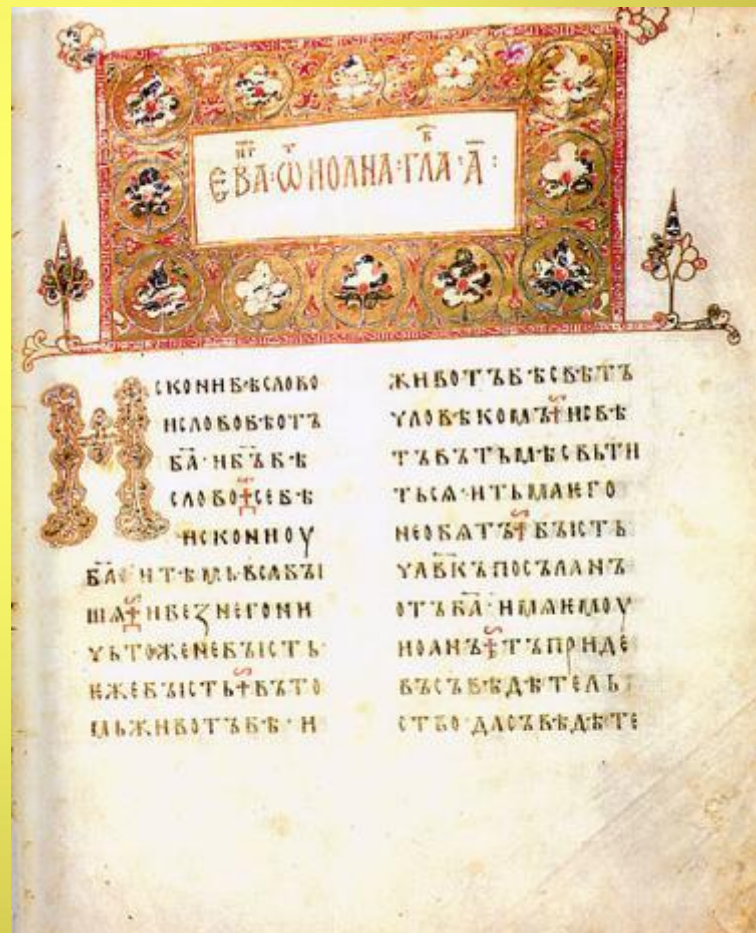 ЕВА·Ѿ ИОАНА·ГЛА·А҃:
ИСКОНИБѢСЛОВО
ИСЛОВОБѢОТЪ
Б҃А·ИБ҃ЪБѢ
СЛОВО СЕБѢ
ИСКОНИОУ
Б҃А ИТѢМЬВСѦБЪІ
ШѦ ИБЕЗНЕГОНИ
ЧЬТОЖЕНЕБЪІСТЬ
ЕЖЕБЪІСТЬ ВЪТО
МЬЖИВОТЪБѢ·И
ЖИВОТЪБѢСВѢТЪ
ЧЛОВѢКОМЪ ИСВѢ
ТЪВЪТЬМѢСВЬТИ
ТЬСѦ·ИТЬМАЕГО
НЕОБѦТЪ БЪІСТЬ
ЧЛ҃ВКЪПОСЪЛАНЪ
ОТЪБ҃А·ИМѦЕМОУ
ИОАНЪ ТЪПРИДЕ
ВЪСЪВѢДѢТЕЛЬ
СТВО·ДАСЪВѢДѢТЕ